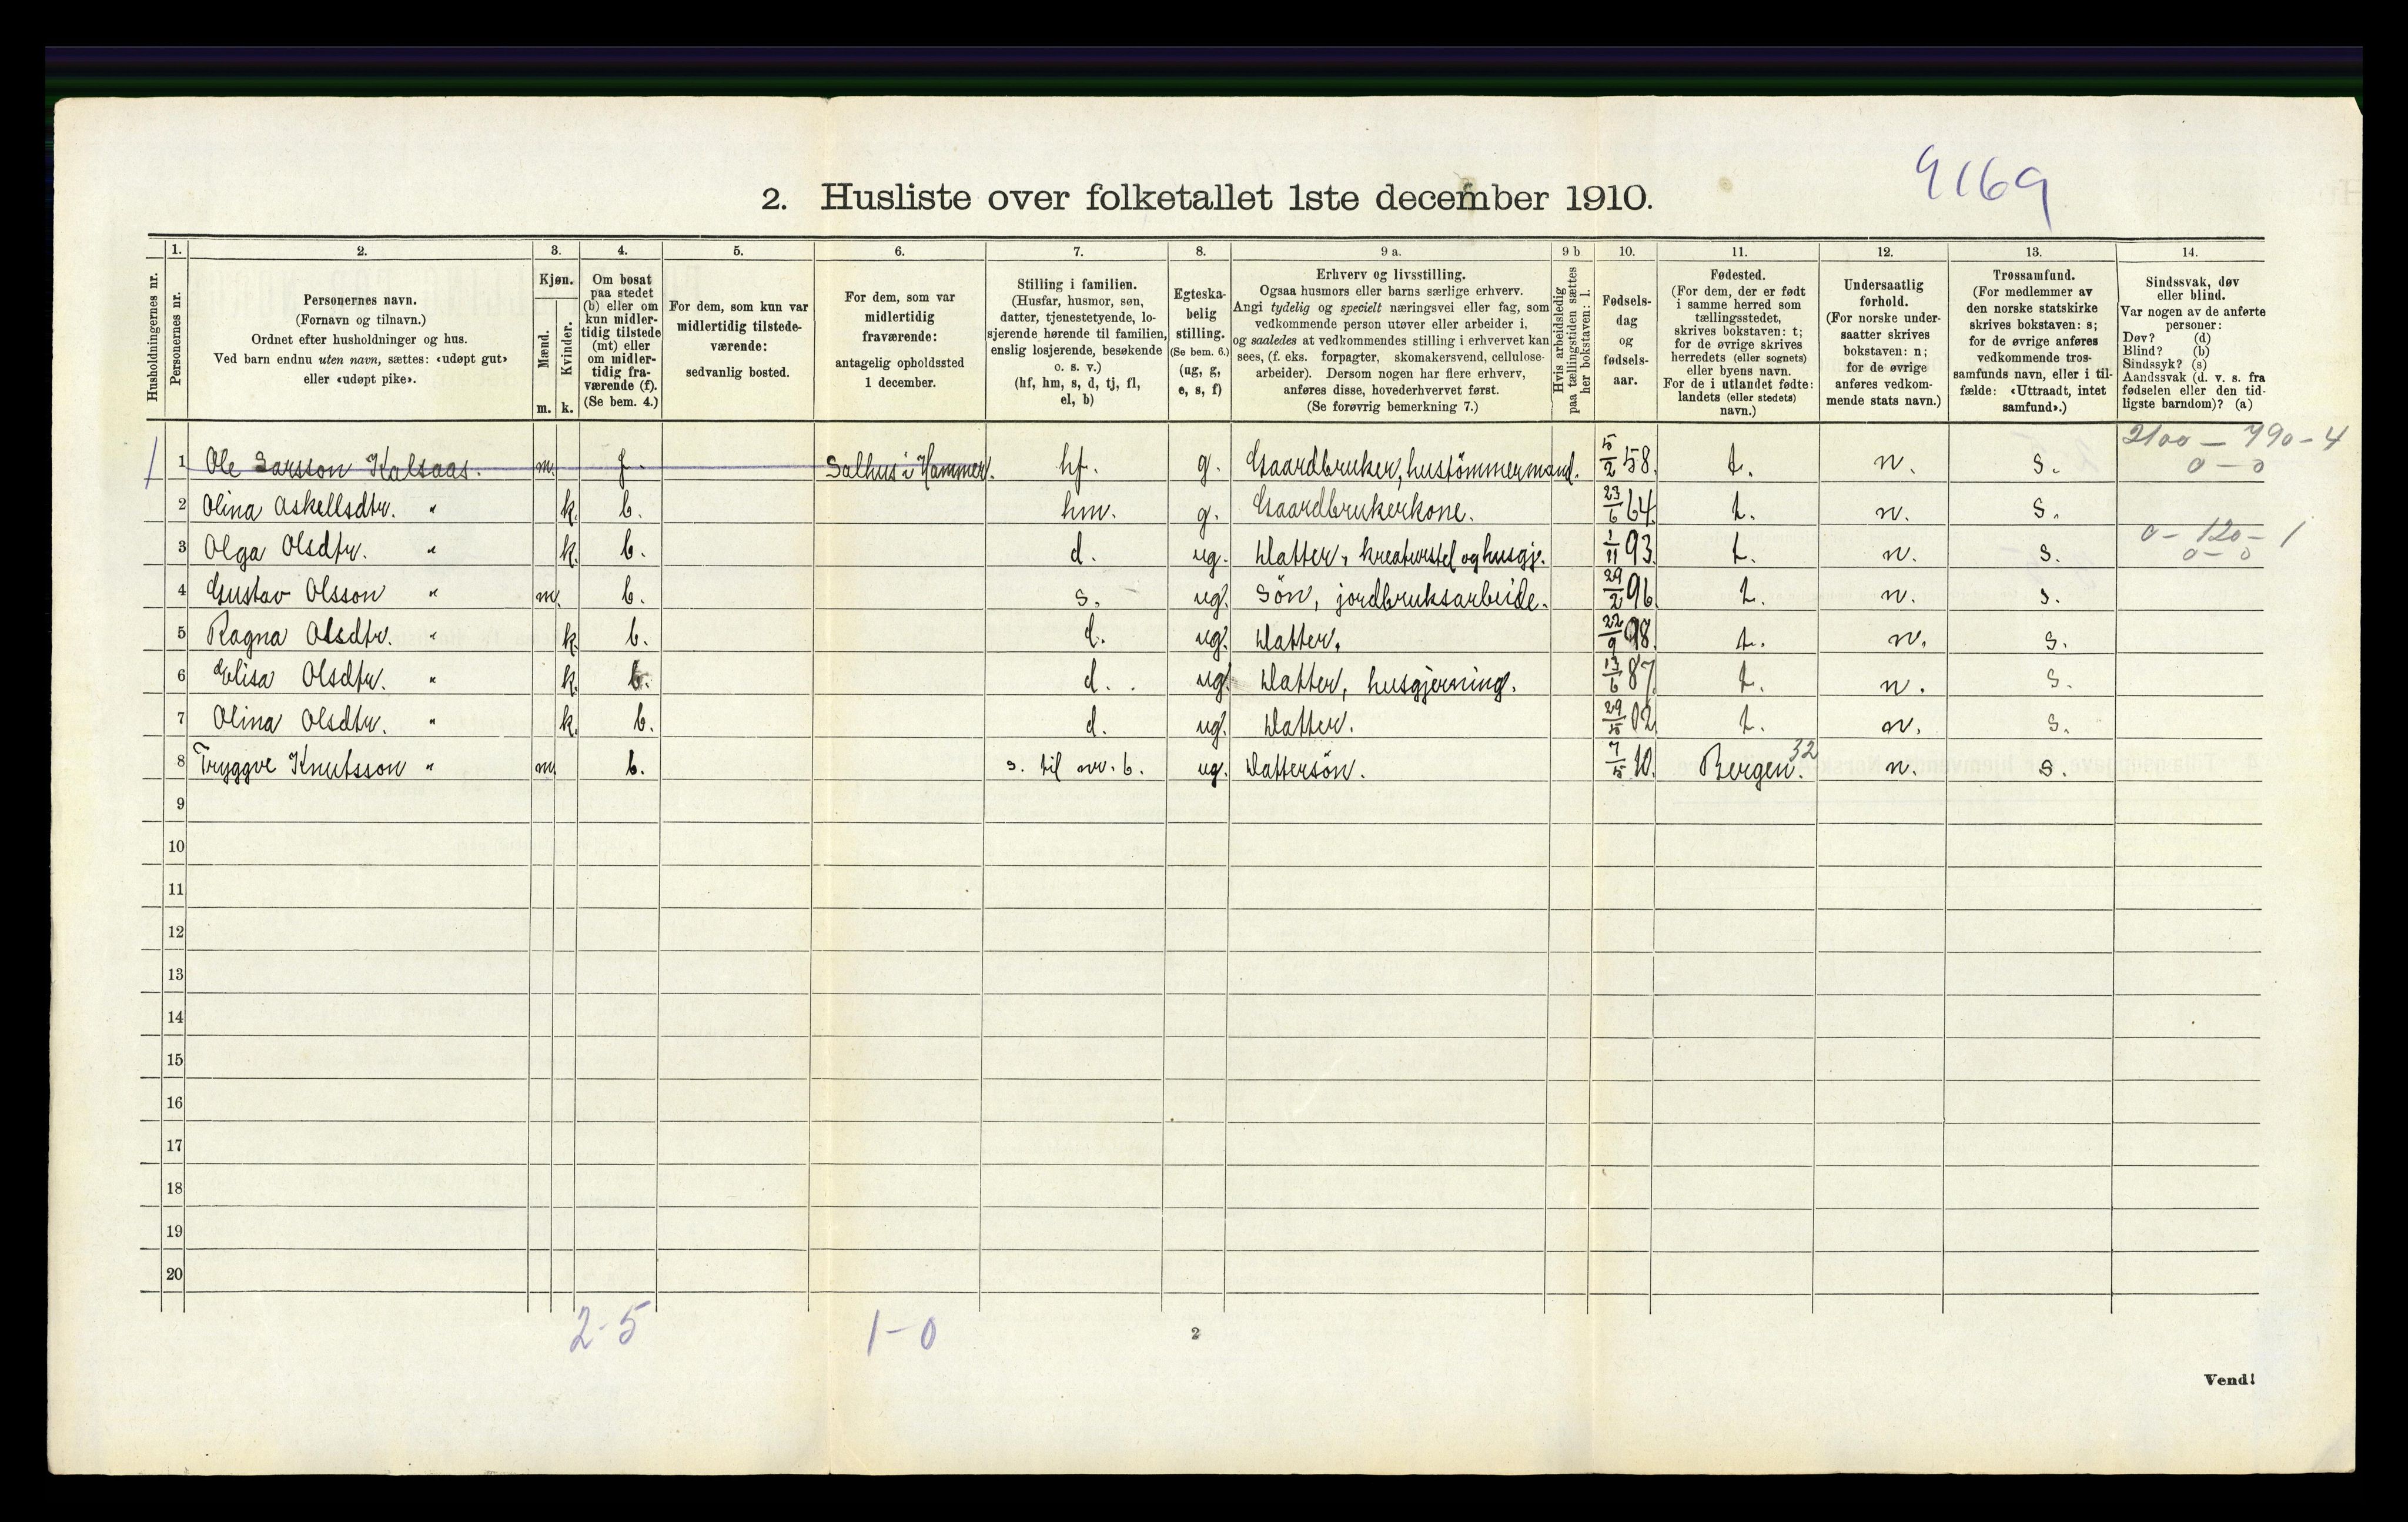 9169
2. Husliste over folketallet 1ste december 1910.
Husholdningernes nr.
1. Personernes nr.
2. Personernes navn.
(Fornavn og tilnavn.)
Ordnet efter husholdninger og hus.
Ved barn endnu uten navn, sættes: «udøpt gut»
eller «udøpt pike».
3. Kjøn.
Mænd. Kvinder.
m. k.
4. Om bosat
paa stedet
(b) eller om
kun midler-
tidig tilstede
(mt) eller
om midler-
tidig fra-
værende (f).
(Se bem. 4.)
5. For dem, som kun var
midlertidig tilstede-
værende:
sedvanlig bosted.
6. For dem, som var
midlertidig
fraværende:
antagelig opholdssted
1 december.
7. Stilling i familien.
(Husfar, husmor, søn,
datter, tjenestetyende, lo-
sjerende hørende til familien,
enslig losjerende, besøkende
o. s. v.)
(hf, hm, s, d, tj, fl,
el, b)
8. Egteska-
belig
stilling.
(Se bem. 6.)
(ug, g,
e, s, f)
9 a. Erhverv og livsstilling.
Ogsaa husmors eller barns særlige erhverv.
Angi tydelig og specielt næringsvei eller fag, som
vedkommende person utøver eller arbeider i,
og saaledes at vedkommendes stilling i erhvervet kan
sees, (f. eks. forpagter, skomakersvend, cellulose-
arbeider). Dersom nogen har flere erhverv,
anføres disse, hovederhvervet først.
(Se forøvrig bemerkning 7.)
9 b Hvis arbeidsledig
paa tællingstiden sættes
her bokstaven: l.
10. Fødsels-
dag
og
fødsels-
aar.
11. Fødested.
(For dem, der er født
i samme herred som
tællingsstedet,
skrives bokstaven: t;
for de øvrige skrives
herredets (eller sognets)
eller byens navn.
For de i utlandet fødte:
landets (eller stedets)
navn.)
12. Undersaatlig
forhold.
(For norske under-
saatter skrives
bokstaven: n;
for de øvrige
anføres vedkom-
mende stats navn.)
13. Trossamfund.
(For medlemmer av
den norske statskirke
skrives bokstaven: s;
for de øvrige anføres
vedkommende tros-
samfunds navn, eller i til-
fælde: «Uttraadt, intet
samfund».)
14. Sindssvak, døv
eller blind.
Var nogen av de anførte
personer:
Døv? (d)
Blind? (b)
Sindssyk? (s)
Aandssvak (d. v. s. fra
fødselen eller den tid-
ligste barndom)? (a)
1 Ole Larsson Kalsaas. m. f. Salhus i Hammer. hf. g. Gaardbruker, hustömmermand. 5/2 58. t. n. s. 2100 - 790 - 4
0 - 0
2 Olina Askellsdtr. " k. b. hm. g. Gaardbrukerkone. 23/6 64. t. n. s.
3 Olga Olsdtr. " k. b. d. ug. Datter, kreaturstel og husgje. 1/11 93. t. n. s. 0 - 120 - 1
0 - 0
4 Gustav Olsson " m. b. s. ug. Sön, jordbruksarbeide. 29/2 96. t. n. s.
5 Ragna Olsdtr. " k. b. d. ug. Datter. 22/9 98. t. n. s.
6 Elisa Olsdtr. " k. b. d. ug. Datter, husgjerning. 13/6 87. t. n. s.
7 Olina Olsdtr. " k. b. d. ug. Datter. 29/5 02. t. n. s.
8 Tryggve Knutsson " m. b. s. til nr. 6. ug. Dattersön. 7/5 10. Bergen. 32 n. s.
9
10
11
12
13
14
15
16
17
18
19
20
2-5 1-0
2
Vend!